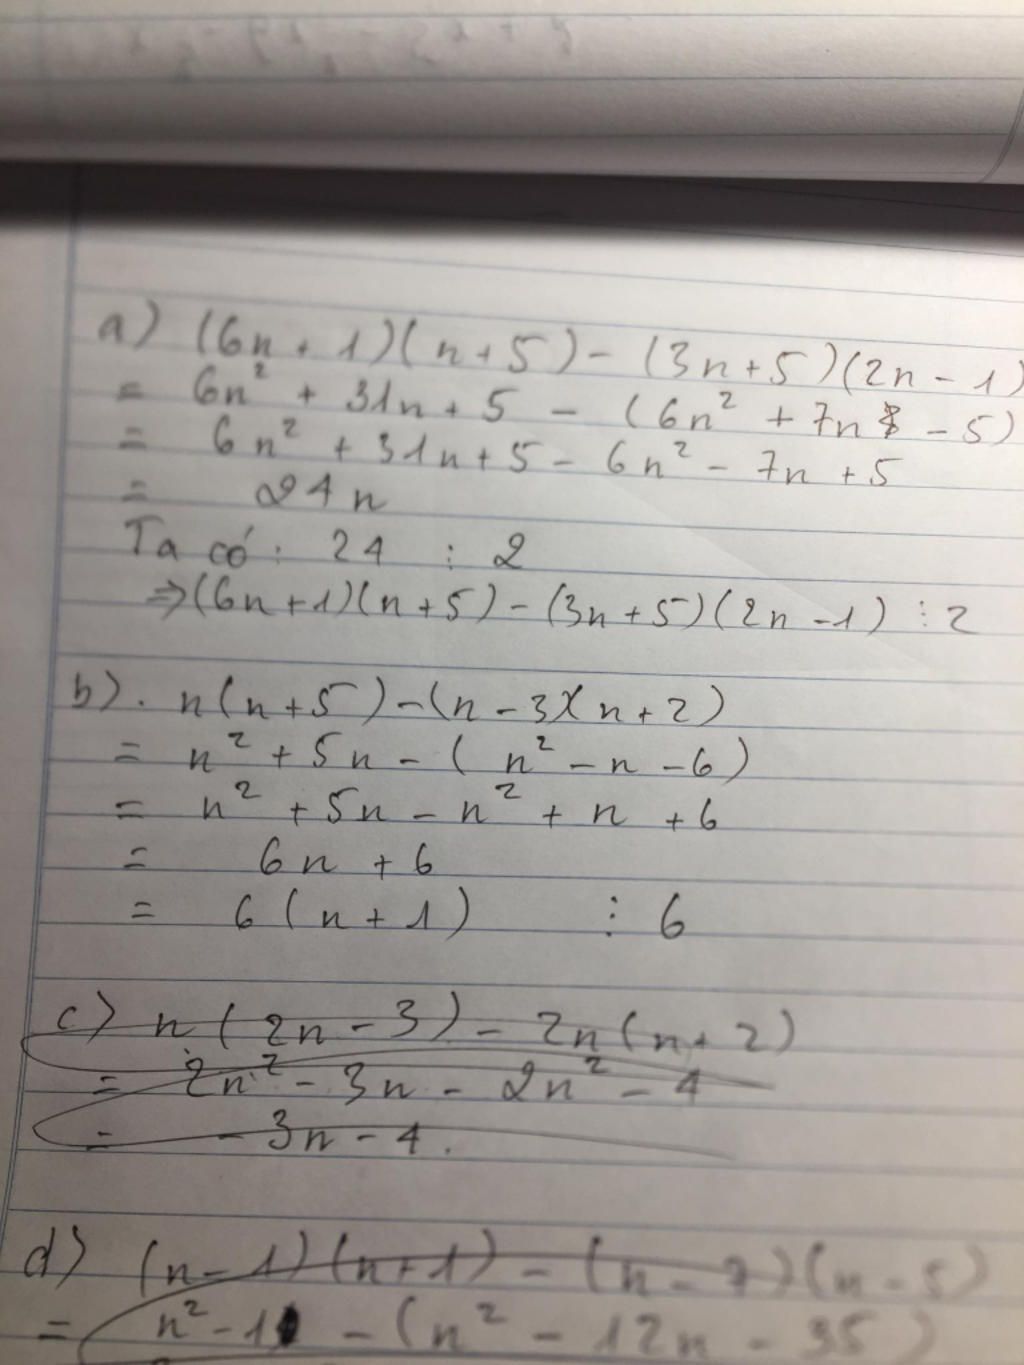 a) (6n + 1)(n + 5) - (3n + 5)(2n - 1)
= 6n² + 31n + 5 - (6n² + 7n - 5)
= 6n² + 31n + 5 - 6n² - 7n + 5
= 24n
Ta có : 24 : 2
⇒ (6n + 1)(n + 5) - (3n + 5)(2n - 1) ⋮ 2
b). n(n + 5) - (n - 3)(n + 2)
= n² + 5n - ( n² - n - 6)
= n² + 5n - n² + n + 6
= 6n + 6
= 6 (n + 1) ⋮ 6
c) n (2n - 3) - 2n (n + 2)
= 2n² - 3n - 2n² - 4
= - 3n - 4.
d) (n - 1)(n + 1) - (n - 7)(n - 5)
= n² - 1 - (n² - 12n - 35)